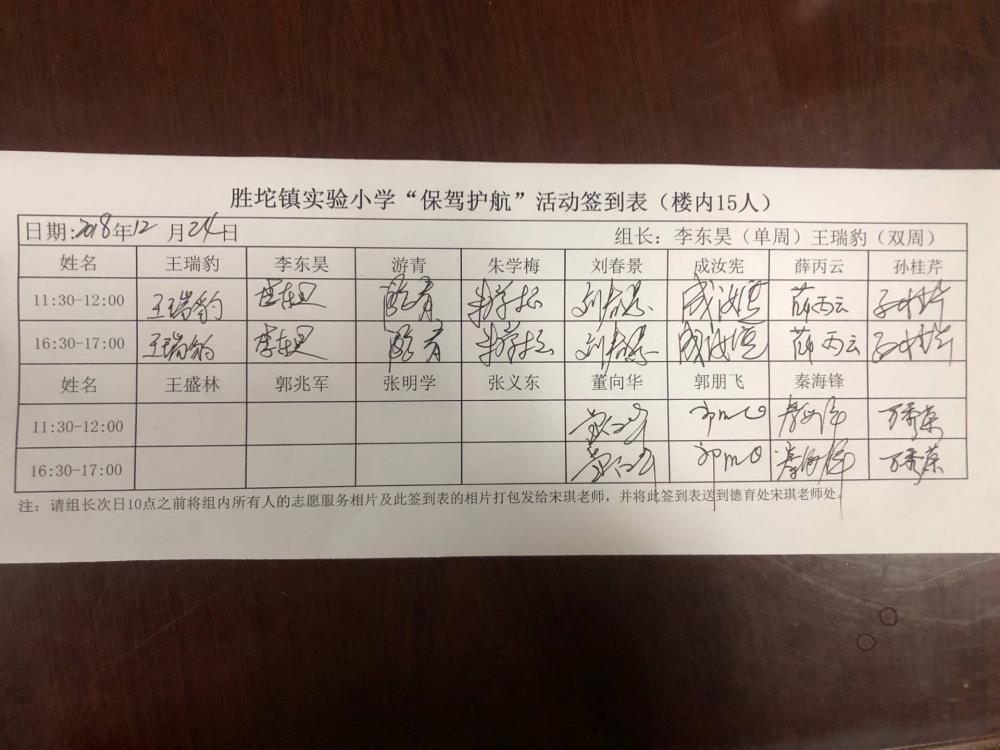 胜坨镇实验小学“保驾护航”活动签到表（楼内15人）
日期:2018年12月24日 组长：李东昊（单周）王瑞豹（双周）
姓名 王瑞豹 李东昊 游青 朱学梅 刘春景 成汝宪 薛丙云 孙桂芹
11:30-12:00 王瑞豹 李东昊 游青 朱学梅 刘春景 成汝宪 薛丙云 孙桂芹
16:30-17:00 王瑞豹 李东昊 游青 朱学梅 刘春景 成汝宪 薛丙云 孙桂芹
姓名 王盛林 郭兆军 张明学 张义东 董向华 郭朋飞 秦海锋
11:30-12:00 董向华 秦海锋
16:30-17:00 董向华 秦海锋
注：请组长次日10点之前将组内所有人的志愿服务相片及此签到表的相片打包发给宋琪老师，并将此签到表送到德育处宋琪老师处。